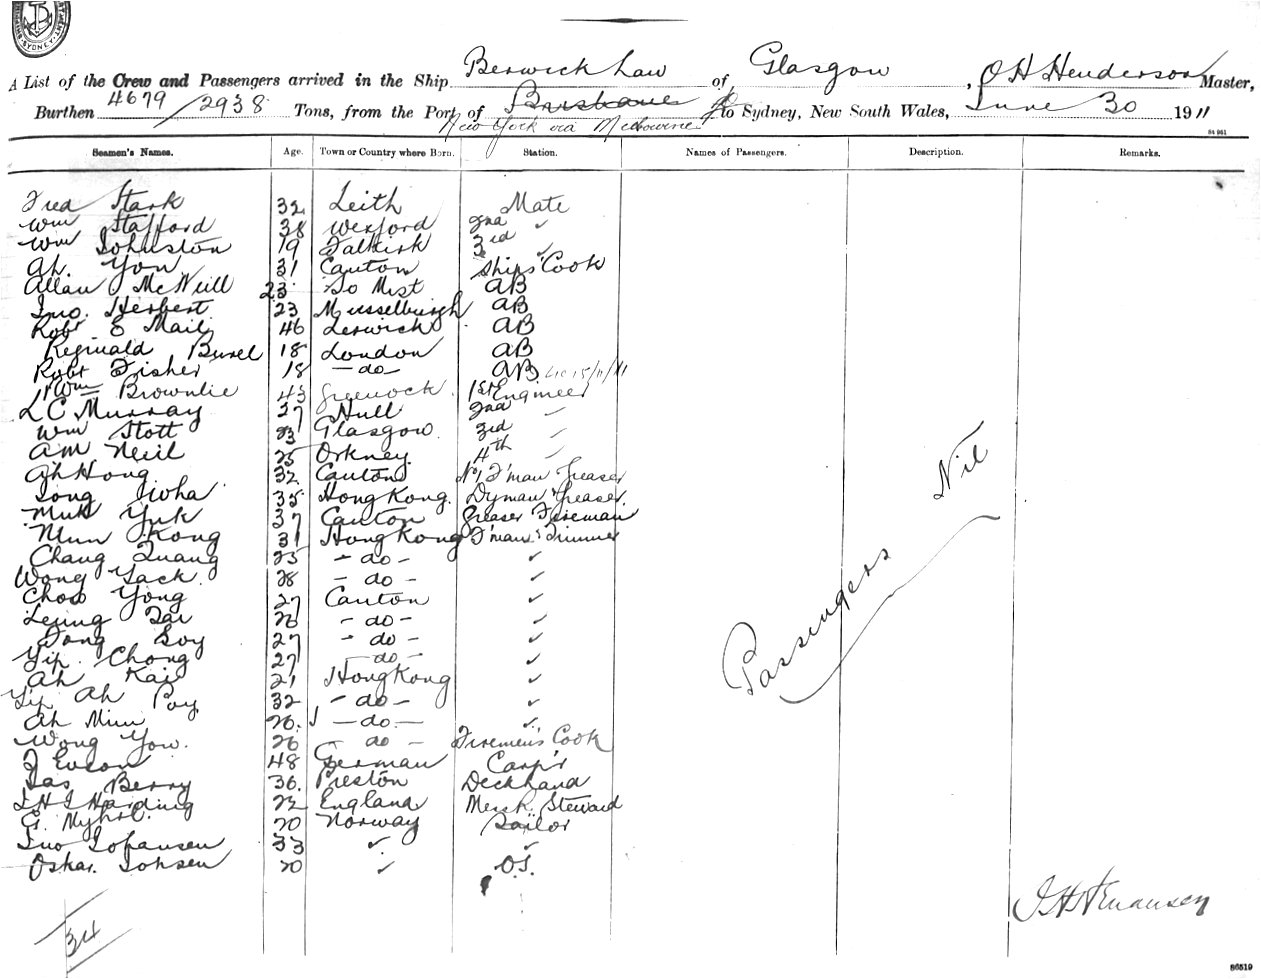 SYDNEY
A List of the Crew and Passengers arrived in the Ship Berwick Law of Glasgow, O H Henderson Master,
Burthen 4679/2938 Tons, from the Port of Brisbane to Sydney, New South Wales, June 30 1911
New York via Melbourne
84 961
Seamen's Names. Age. Town or Country where Born. Station. Names of Passengers. Description. Remarks.
Fred Stark 32 Leith Mate
Wm Stafford 38 Wexford 2nd ✓
Wm Johnston 19 Falkirk 3rd ✓
Ah. Yon 31 Canton Ships Cook
Allan McNeill 23 To Mist AB
Jno. Herbert 23 Musselburgh AB
Robt E Mail 46 Lerwick AB
Reginald Burel 18 London AB
Robt Fisher 18 - do - AB
Wm Brownlie 43 Greenock 1st Engineer
L C Murray 27 Hull 2nd
Wm Stott 23 Glasgow 3rd
A M Neil 25 Orkney 4th
Ah Hong 32 Canton No 1 F'man Greaser
Song Wha 35 Hong Kong D'yman Greaser
Muk Yuk 37 Canton Greaser Fireman
Mun Kong 31 Hong Kong F'man & Trimmer
Chang Quang 25 - do - ✓
Wong Yack 28 - do - ✓
Chow Yong 27 Canton ✓
Leung Tai 26 - do - ✓
Tong Soy 27 - do - ✓
Yip Chong 27 - do - ✓
Ah Kai 21 Hong Kong ✓
Yip Ah Poy 32 - do - ✓
Ah Mun 26 - do - ✓
Wong Yow. 26 - do - Firemen's Cook
48 German Carp'r
Jas Berry 36 Preston Deckhand
Harding 22 England Mess R. Steward
G. Myhre 20 Norway Sailor
Jno Johansen 33 ✓ ✓
Oskar Johsen 20 ✓ O.S.
Passengers Nil
34
86519